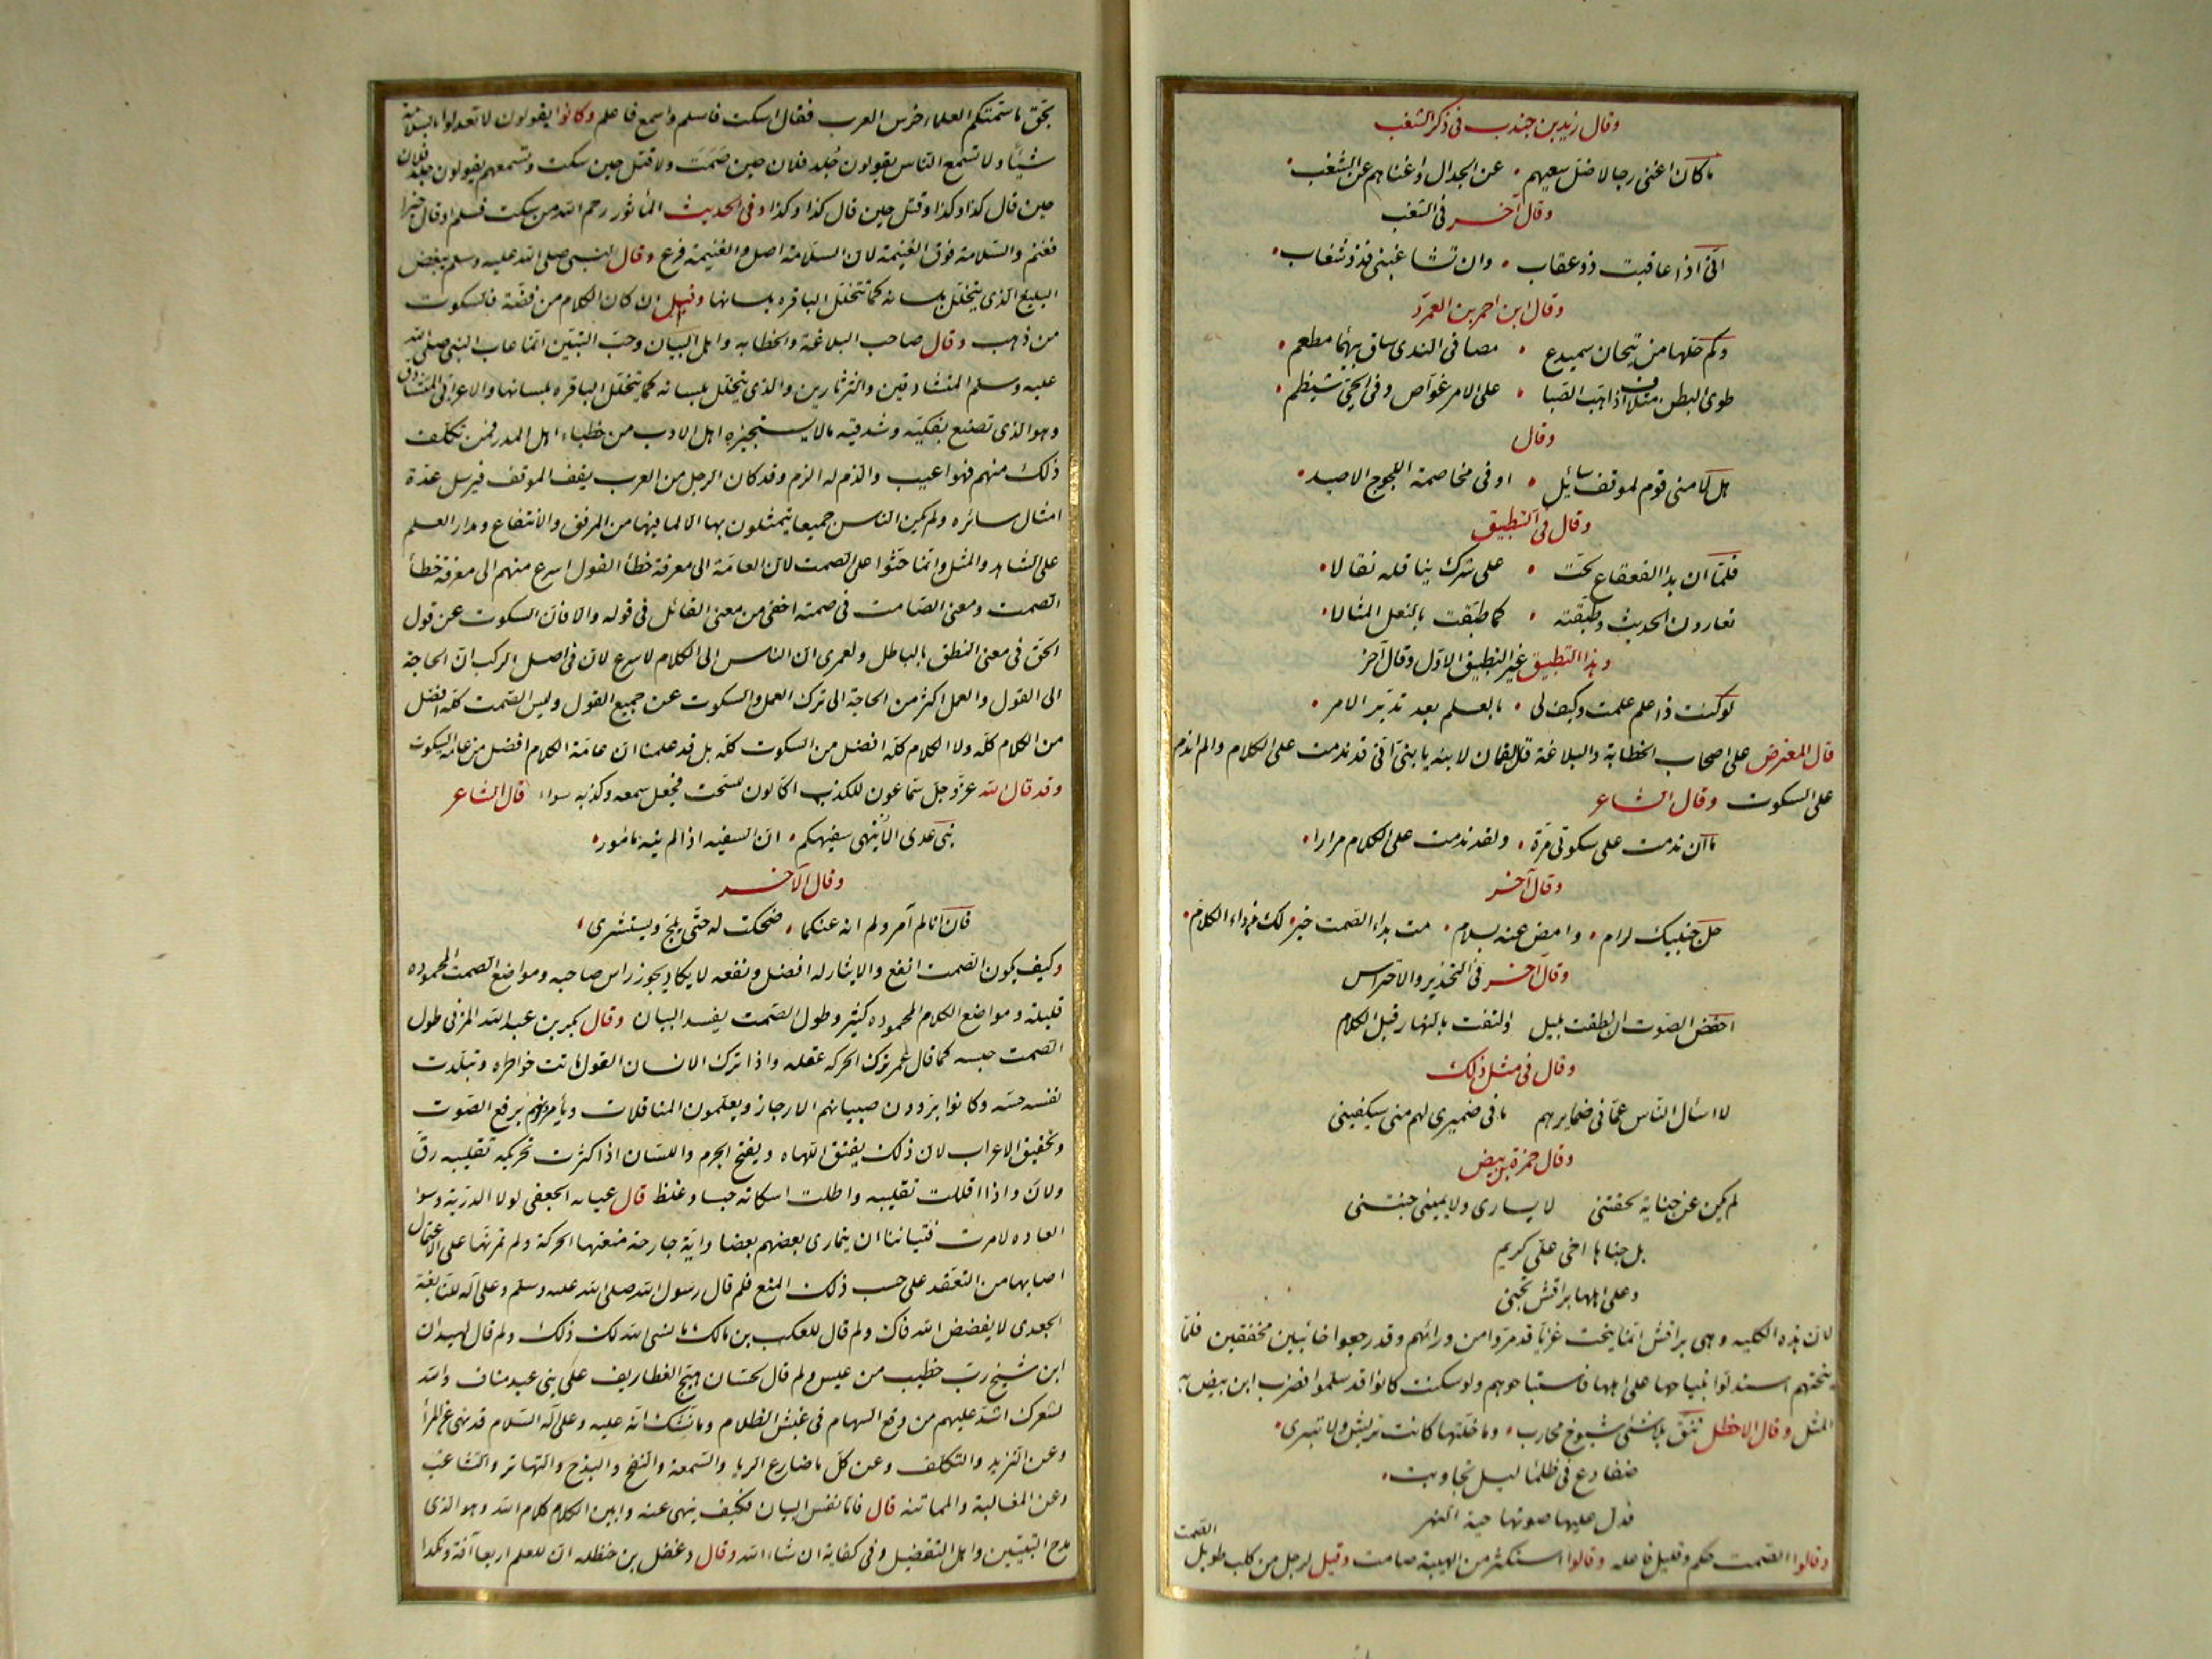 وقال زيد بن جندب في ذكر الشغب
ما كان اغنى رجالا ضل سعيهم عن الجدال واغناهم عن الشغب
وقال آخر في الشغب
انى اذا عاقبت ذو عقاب وان تشاغبنى فذو شغاب
وقال ابن احمر بن العمرد
وكم حلها من تيحان سميدع مصافى الندى ساق بيهماء مطعم
طوى البطن متلاف اذا هبت الصبا على الامر غواص وفى الحى شيظم
وقال
هل لامنى قوم لموقف سائل او فى مخاصمة اللجوج الاصيد
وقال فى التطبيق
فلما ان بدا القعقاع لحت على شرك يناقله نقالا
تعاورن الحديث وطبقته كما طبقت بالنعل المثالا
وهذا التطبيق غير التطبيق الاول وقال آخر
لو كنت ذا علم علمت وكيف لى بالعلم بعد تدبر الامر
قال المعترض على اصحاب الخطابة والبلاغة قال لقمان لابنه يا بنى انى قد ندمت على الكلام ولم اندم
على السكوت وقال الشاعر
ما ان ندمت على سكوتى مرة ولقد ندمت على الكلام مرارا
وقال آخر
خل جنبيك لرام وامض عنه بسلام مت بداء الصمت خير لك من داء الكلام
وقال آخر فى التحذير والاحتراس
اخفض الصوت ان نطقت بليل والتفت بالنهار قبل الكلام
وقال فى مثل ذلك
لا اسأل الناس عما فى ضمايرهم ما فى ضميرى لهم منى سيكفينى
وقال حمزة بن بيض
لم يكن عن جناية لحقتنى لا يسارى ولا يمينى جنتنى
بل جناها اخى على كريم
وعلى اهلها براقش تجنى
لان هذه الكلبه وهى براقش انما نبحت غزيا قد مروا من ورائهم وقد رجعوا خائبين مخفقين فلما
نبحتهم استدلوا بنباحها على اهلها فاستباحوهم ولو سكتت كانوا قد سلموا فضرب ابن بيض به
المثل وقال الاخطل تنق بلا شئ شيوخ محارب وما خلتها كانت تريش ولا تبرى
ضفادع فى ظلماء ليل تجاوبت
فدل عليها صوتها حية النهر
وقالوا الصمت حكم وقليل فاعله وقالوا استكثر من الهيبة صامت وقيل لرجل من كلب طويل الصمت
بحق ما سمتكم العلماء خرس العرب فقال اسكت فاسلم واسمع فاعلم وكانوا يقولون لا تعدلوا بالسلامة
شيئا ولا تسمع الناس يقولون جلد فلان حين صمت ولا قتل حين سكت وتسمعهم يقولون جلد فلان
حين قال كذا وكذا وقتل حين قال كذا وكذا وفى الحديث المأثور رحم الله من سكت فسلم او قال خيرا
فغنم والسلامة فوق الغنيمة لان السلامة اصل والغنيمة فرع وقال النبى صلى الله عليه وسلم يبغض
البليغ الذى يتخلل بلسانه كما تتخلل الباقره بلسانها وقيل ان كان الكلام من فضة فالسكوت
من ذهب وقال صاحب البلاغة والخطابه واهل البيان وحب التبيين انما عاب النبى صلى الله
عليه وسلم المتشادقين والثرثارين والذى يتخلل بلسانه كما يتخلل الباقره بلسانها والاعرابى المتشادق
وهو الذى تصنع بفكيه وشدقيه ما لا يستجيزه اهل الادب من خطباء اهل المدر فمن تكلف
ذلك منهم فهو اعيب والذم له الزم وقد كان الرجل من العرب يقف الموقف فيرسل عدة
امثال سائره ولم يكن الناس جميعا يتمثلون بها الا لما فيها من المرفق والانتفاع ومدار العلم
على الشاهد والمثل وانما حثوا على الصمت لان العامة الى معرفة خطأ القول اسرع منهم الى معرفة خطأ
الصمت ومعنى الصامت فى صمته اخفى من معنى القائل فى قوله والا فان السكوت عن قول
الحق فى معنى النطق بالباطل ولعمرى ان الناس الى الكلام لاسرع لان فى اصل التركيب ان الحاجة
الى القول والعمل اكثر من الحاجة الى ترك العمل والسكوت عن جميع القول وليس الصمت كله افضل
من الكلام كله ولا الكلام كله افضل من السكوت كله بل قد علمنا ان عامة الكلام افضل من عامة السكوت
وقد قال الله عز وجل سماعون للكذب اكالون للسحت فجعل سمعه وكذبه سواء قال الشاعر
بنى عدى الا ينهى سفيهكم ان السفيه اذا لم ينه مأمور
وقال الآخر
فان انا لم آمر ولم انه عنكما ضحكت له حتى يلج ويستشرى
وكيف يكون الصمت انفع والايثار له افضل ونفعه لا يكاد يجوز راس صاحبه ومواضع الصمت المحموده
قليلة ومواضع الكلام المحموده كثير وطول الصمت يفسد البيان وقال بكر بن عبد الله المزنى طول
الصمت حبسه كما قال عمر ترك الحركه عقله واذا ترك الانسان القول ماتت خواطره وتبلدت
نفسه حسه وكانوا يروون صبيانهم الارجاز ويعلمون المناقلات ويأمرونهم برفع الصوت
وتحقيق الاعراب لان ذلك يفتق اللهاه ويفتح الجرم واللسان اذا كثرت تحريكه تقليبه رق
ولان واذا اقللت تقليبه واطلت اسكاته جسا وغلظ قال عبايه الجعفى لولا الدربة وسوء
العاده لامرت فتياننا ان يمارى بعضهم بعضا واية جارحة منعتها الحركة ولم تمرنها على الاعتمال
اصابها من التعقد على حسب ذلك المنع فلم قال رسول الله صلى الله عليه وسلم وعلى آله للنابغة
الجعدى لا يفضض الله فاك ولم قال للعكب بن مالك ما نسى الله لك ذلك ولم قال لهيدان
ابن شيخ رب خطيب من عبس ولم قال لحسان هيج الغطاريف على بنى عبد مناف والله
لشعرك اشد عليهم من وقع السهام فى غبش الظلام وما نشك انه عليه وعلى آله السلام قد نهى عن المراء
وعن التزيد والتكلف وعن كل ما ضارع الرياء والسمعة والنفج والبذخ والتهاتر والتشاغب
وعن المغالبة والمماتنه قال فاما نفس البيان فكيف ينهى عنه وابين الكلام كلام الله وهو الذى
مدح التبيين واهل التفضيل وفى كفاية ان شاء الله وقال دغفل بن حنظله ان للعلم اربعا آفة ونكدا